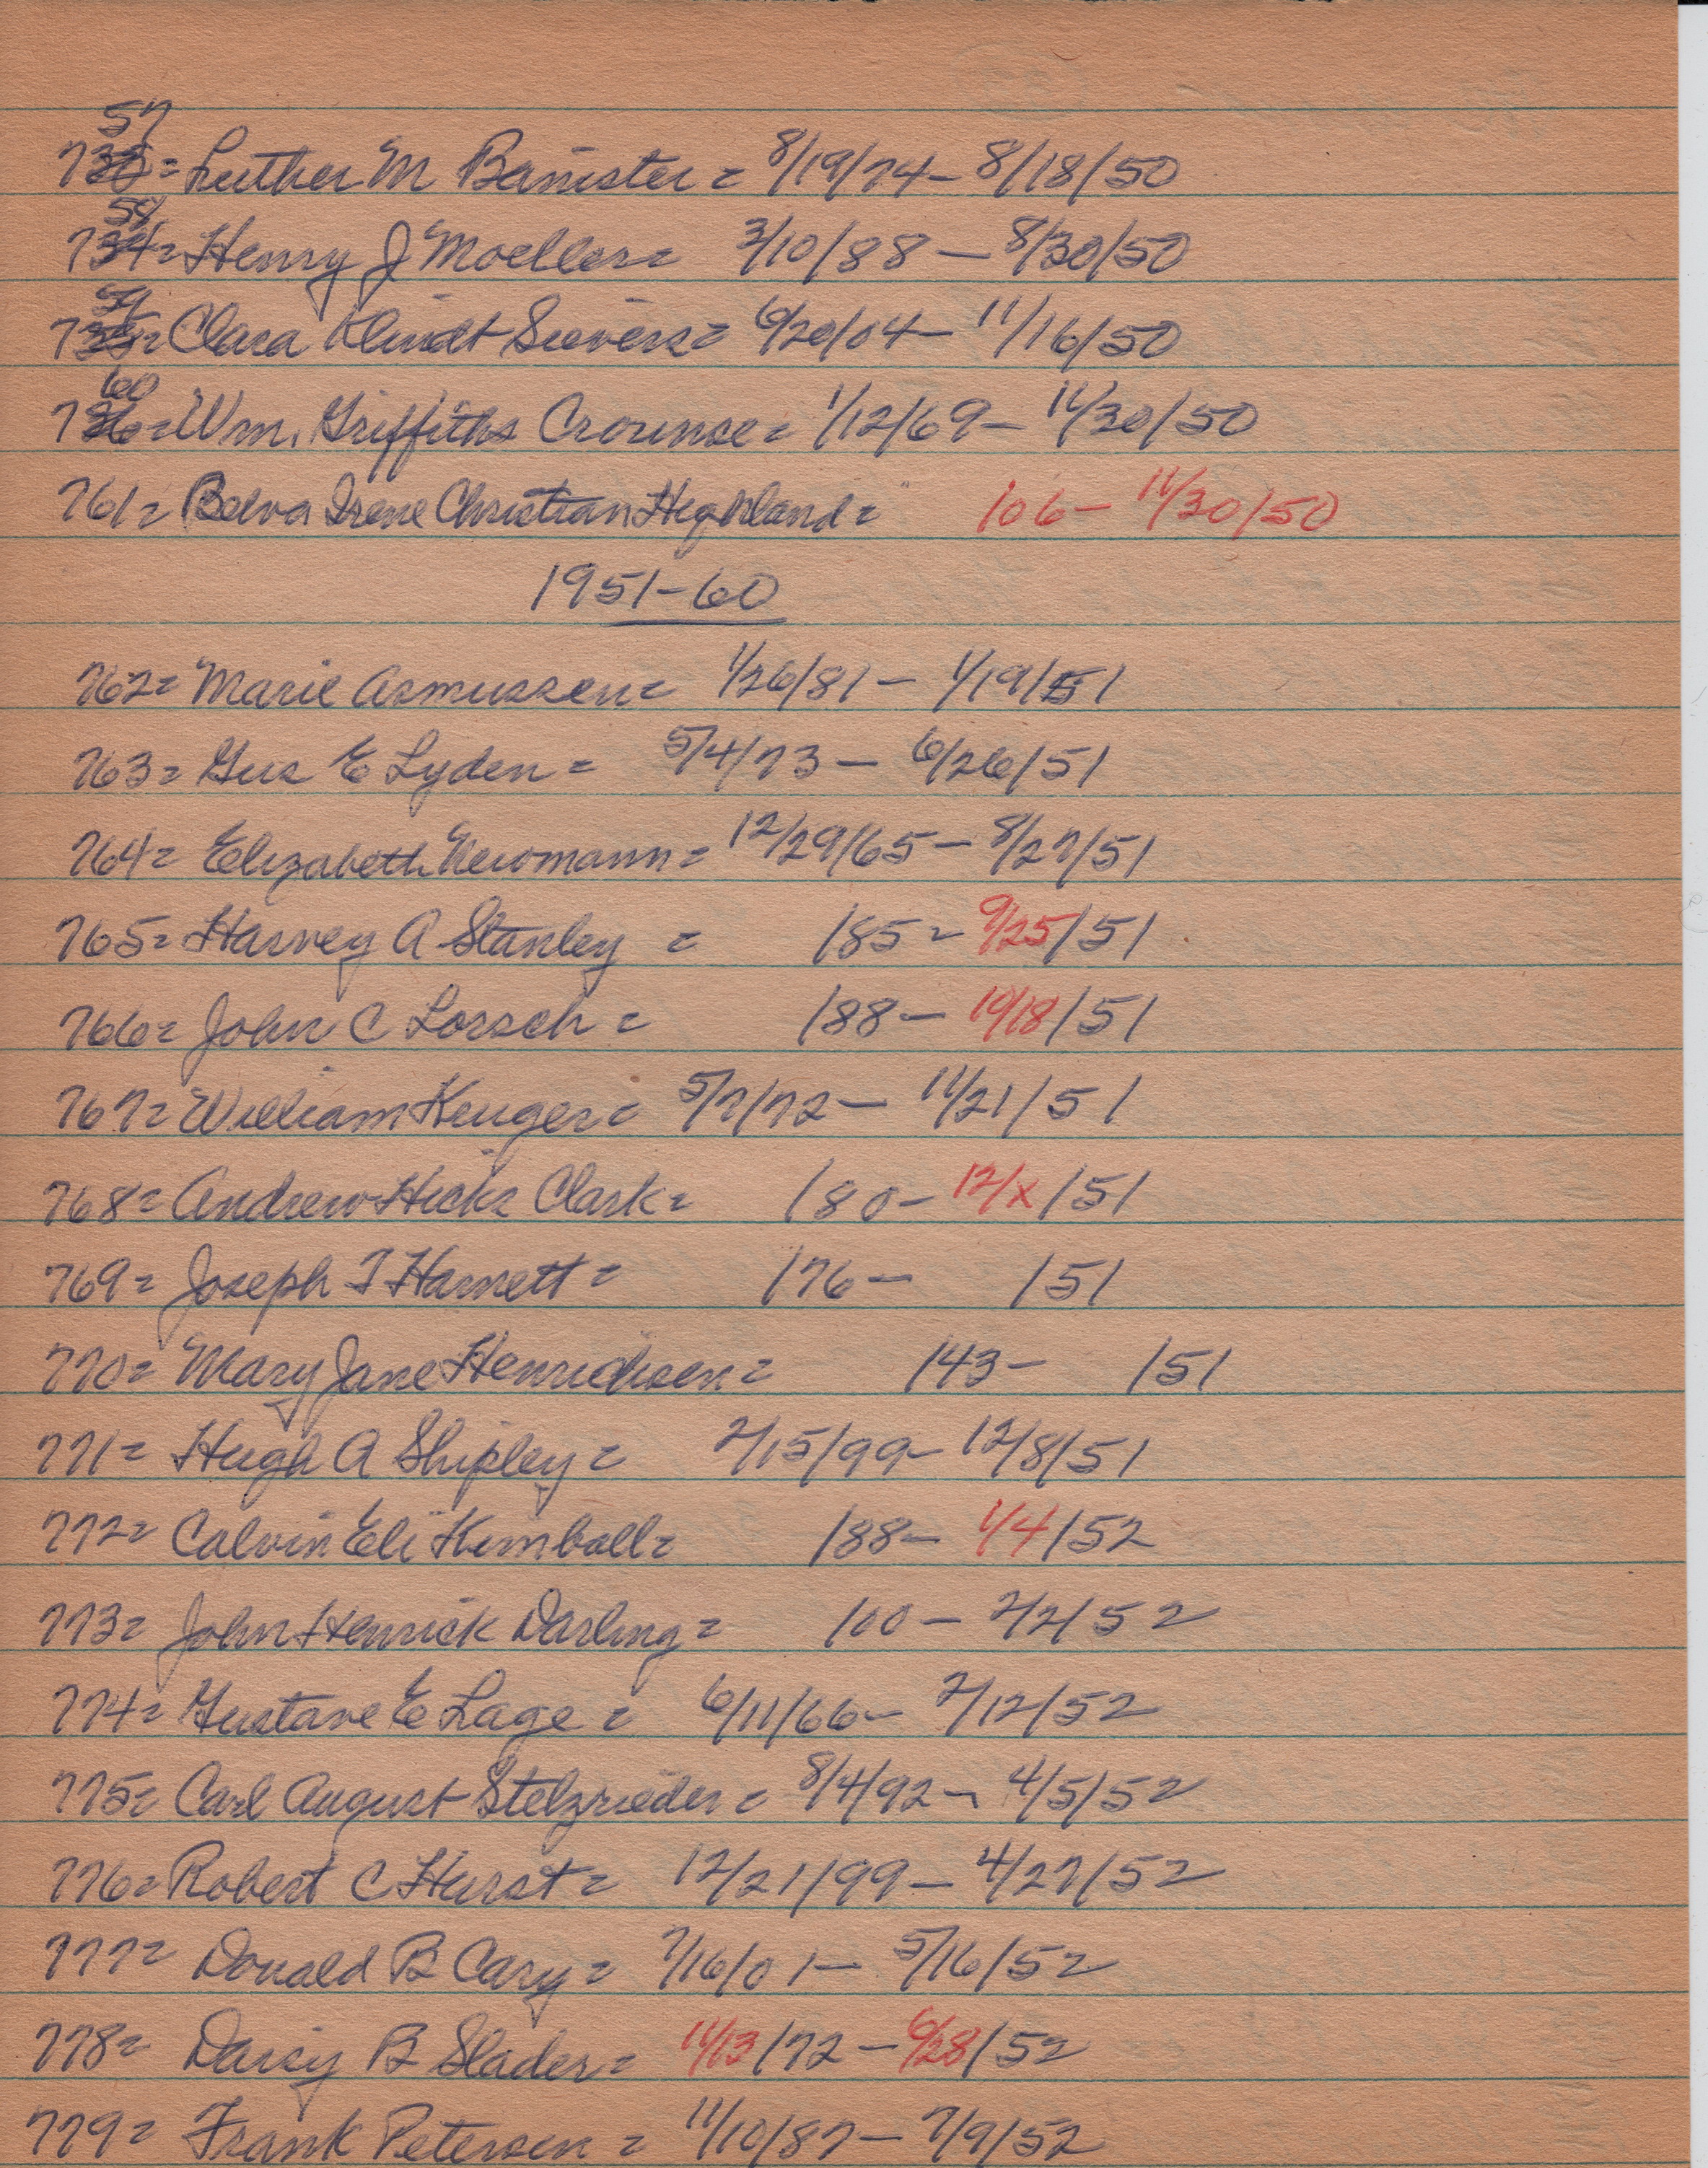 57
733= Luther M Banister = 8/19/74 - 8/18/50
58
734= Henry J Moeller= 3/10/88 - 8/30/50
59
735= Clara Klindt Sievers= 6/20/04 - 11/16/50
60
736= Wm. Griffiths Crounse= 1/12/69 - 11/30/50
761= Belva Irene Christian Highland= /06 - 11/30/50
1951-60
762= Marie Asmussen= 1/26/81 - 1/19/51
763= Gus E Lyden = 5/4/73 - 6/26/51
764= Elizabeth Newmann = 12/29/65 - 8/27/51
765= Harvey A Stanley = /85 - 9/25/51
766= John C Lorsch = /88 - 10/18/51
767= William Kruger= 5/7/72 - 11/21/51
768= Andrew Hicks Clark= /80 - 12/x/51
769= Joseph T Harnett = /76 - /51
770= Mary Jane Henrichsen = /43 - /51
771= Hugh A Shipley = 2/15/99 - 12/8/51
772= Calvin Eli Kimball= /88 - 1/4/52
773= John Henrick Darling = /00 - 2/2/52
774= Gustave E Lage = 6/11/66 - 2/12/52
775= Carl August Stelzrieder = 8/4/92 - 4/5/52
776= Robert C Hurst = 12/21/99 - 4/27/52
777= Donald B Cary = 7/16/01 - 5/16/52
778= Daisy B Slader = 11/13/72 - 6/28/52
779= Frank Petersen = 11/10/87 - 7/9/52